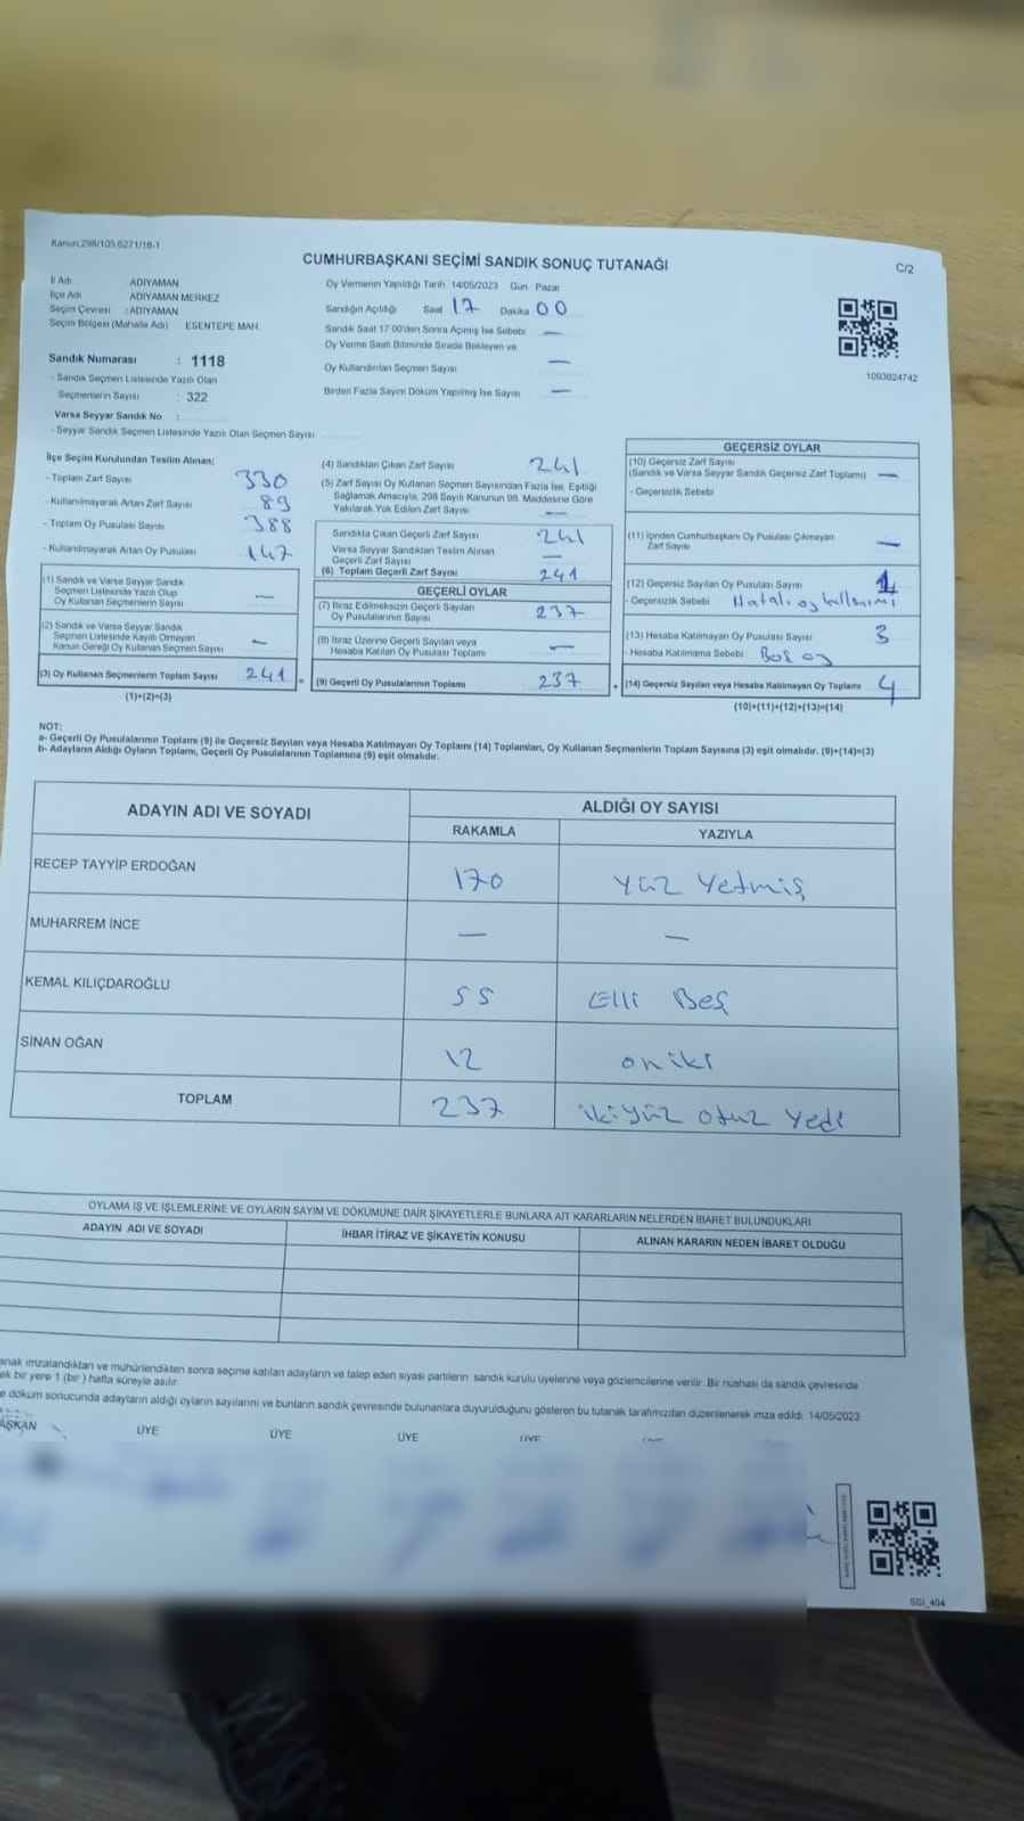 Kanun:298/105,6271/16-1
CUMHURBAŞKANI SEÇİMİ SANDIK SONUÇ TUTANAĞI
C/2
İl Adı : ADIYAMAN
İlçe Adı : ADIYAMAN MERKEZ
Seçim Çevresi : ADIYAMAN
Seçim Bölgesi (Mahalle Adı) : ESENTEPE MAH.
Sandık Numarası : 1118
- Sandık Seçmen Listesinde Yazılı Olan
Seçmenlerin Sayısı : 322
Varsa Seyyar Sandık No :
- Seyyar Sandık Seçmen Listesinde Yazılı Olan Seçmen Sayısı
Oy Vermenin Yapıldığı Tarih: 14/05/2023 Gün: Pazar
Sandığın Açıldığı Saat 17 Dakika 00
Sandık Saat 17:00'den Sonra Açılmış İse Sebebi —
Oy Verme Saati Bitiminde Sırada Bekleyen ve
Oy Kullandırılan Seçmen Sayısı —
Birden Fazla Sayım Döküm Yapılmış İse Sayısı —
1093024742
İlçe Seçim Kurulundan Teslim Alınan:
- Toplam Zarf Sayısı 330
- Kullanılmayarak Artan Zarf Sayısı 89
- Toplam Oy Pusulası Sayısı 388
- Kullanılmayarak Artan Oy Pusulası 147
(1) Sandık ve Varsa Seyyar Sandık
Seçmen Listesinde Yazılı Olup
Oy Kullanan Seçmenlerin Sayısı —
(2) Sandık ve Varsa Seyyar Sandık
Seçmen Listesinde Kayıtlı Olmayan
Kanun Gereği Oy Kullanan Seçmen Sayısı —
(3) Oy Kullanan Seçmenlerin Toplam Sayısı 241
(1)+(2)=(3)
(4) Sandıktan Çıkan Zarf Sayısı 241
(5) Zarf Sayısı Oy Kullanan Seçmen Sayısından Fazla İse, Eşitliği
Sağlamak Amacıyla, 298 Sayılı Kanunun 98. Maddesine Göre
Yakılarak Yok Edilen Zarf Sayısı —
Sandıkta Çıkan Geçerli Zarf Sayısı 241
Varsa Seyyar Sandıktan Teslim Alınan
Geçerli Zarf Sayısı —
(6) Toplam Geçerli Zarf Sayısı 241
GEÇERLİ OYLAR
(7) İtiraz Edilmeksizin Geçerli Sayılan
Oy Pusulalarının Sayısı 237
(8) İtiraz Üzerine Geçerli Sayılan veya
Hesaba Katılan Oy Pusulası Toplamı —
(9) Geçerli Oy Pusulalarının Toplamı 237
GEÇERSİZ OYLAR
(10) Geçersiz Zarf Sayısı
(Sandık ve Varsa Seyyar Sandık Geçersiz Zarf Toplamı) —
- Geçersizlik Sebebi
(11) İçinden Cumhurbaşkanı Oy Pusulası Çıkmayan
Zarf Sayısı —
(12) Geçersiz Sayılan Oy Pusulası Sayısı 1
- Geçersizlik Sebebi Hatalı oy kullanımı
(13) Hesaba Katılmayan Oy Pusulası Sayısı 3
- Hesaba Katılmama Sebebi Boş oy
(14) Geçersiz Sayılan veya Hesaba Katılmayan Oy Toplamı 4
(10)+(11)+(12)+(13)=(14)
NOT:
a- Geçerli Oy Pusulalarının Toplamı (9) ile Geçersiz Sayılan veya Hesaba Katılmayan Oy Toplamı (14) Toplamları, Oy Kullanan Seçmenlerin Toplam Sayısına (3) eşit olmalıdır. (9)+(14)=(3)
b- Adayların Aldığı Oyların Toplamı, Geçerli Oy Pusulalarının Toplamına (9) eşit olmalıdır.
ADAYIN ADI VE SOYADI
ALDIĞI OY SAYISI
RAKAMLA YAZIYLA
RECEP TAYYİP ERDOĞAN 170 yüz yetmiş
MUHARREM İNCE — —
KEMAL KILIÇDAROĞLU 55 Elli Beş
SİNAN OĞAN 12 oniki
TOPLAM 237 ikiyüz otuz yedi
OYLAMA İŞ VE İŞLEMLERİNE VE OYLARIN SAYIM VE DÖKÜMÜNE DAİR ŞİKAYETLERLE BUNLARA AİT KARARLARIN NELERDEN İBARET BULUNDUKLARI
ADAYIN ADI VE SOYADI İHBAR İTİRAZ VE ŞİKAYETİN KONUSU ALINAN KARARIN NEDEN İBARET OLDUĞU
anak imzalandıktan ve mühürlendikten sonra seçime katılan adayların ve talep eden siyasi partilerin sandık kurulu üyelerine veya gözlemcilerine verilir. Bir nüshası da sandık çevresinde
ek bir yere 1 (bir) hafta süreyle asılır.
e döküm sonucunda adayların aldığı oyların sayılarını ve bunların sandık çevresinde bulunanlara duyurulduğunu gösteren bu tutanak tarafımızdan düzenlenerek imza edildi. 14/05/2023
AŞKAN ÜYE ÜYE ÜYE ÜYE